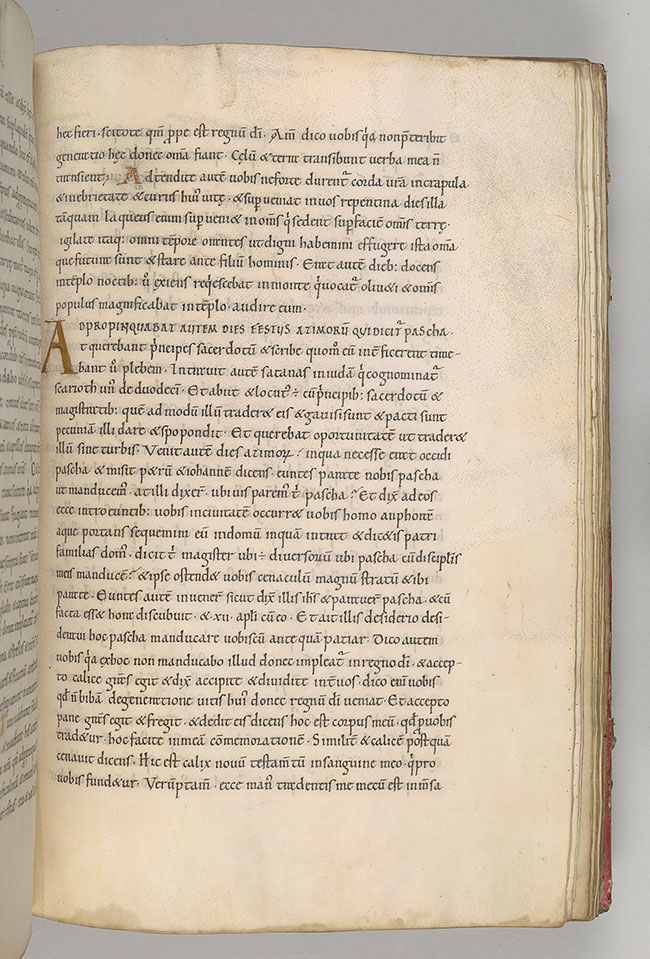 hec fieri · scitote qm̄ ꝓpe est regnū dī · Am̄ dico uobis q̇a nonp̄teribit
generatio hęc donec om̄a fiant · Cęlū & terra transibunt uerba mea n̄
transient · Adtendite autē uobis neforte durent᷑ corda ur̄a incrapula
& inebrietate & curis hui᷒ uitę · & sup̄ueniat inuos repentina dies illa
tāquam laqueus enim sup̄ueni& in om̄s q̇ sedent sup̄ faciē om̄is terrę ·
igilate itaq: omni tēpore orantes ut digni habeamini effugere ista om̄a
que futura sunt & stare ante filiū hominis · Erat autē dieb: docens
intēplo noctib: ū exiens req̇escebat in monte q̇ uocat᷑ oliu&i & om̄is
populus magnificabat intēplo · audire eum ·
ADPROPINQUABAT AUTEM DIES FESTUS AZIMORŪ QUI DICIT᷑ pascha ·
& querebant p̄ncipes sacerdotū & scribe quom̄ eū int̄ficerent time-
bant ū plebem · Intrauit autē satanas in iuda q̇ cognominat᷑
scarioth un᷒ de duodeci · Et abiit & locut᷒ ÷ cū p̄ncipib: sacerdotū &
magistratib: quē ad modū illū trader& eis & gauisi sunt & pacti sunt
pecuniā illi dare & spopondit · Et querebat oportunitatē ut trader&
illū sine turbis · Venit autē dies azimoꝝ · inqua necesse erat occidi
pascha & misit p&rū & iohannē dicens · euntes parate nobis pascha
ut manducem᷒ · at illi dixer̄ · ubi uis parem᷒ t̄ pascha · Et dix̄ ad eos
ecce introeuntib: uobis in ciuitatē occurr& uobis homo amphorā
aque portans sequemini eū indomū inquam intrat & dic&is patri
familias dom᷒ · dicit t̄ magister ubi ÷ diuersoriū ubi pascha cū discipl̄is
meis manducē · & ipse ostend& uobis cenaculū magnū stratū & ibi
parate · Euntes autē inuener̄ sicut dix̄ illis ih̄s & parauer̄ pascha · & cū
facta ess& hora discubuit · & xii · apl̄i cū eo · Et ait illis desiderio desi-
deraui hoc pascha manducare uobiscū ante quā patiar · Dico autem
uobis q̇a ex hoc non manducabo illud donec impleat᷑ in regno dī · & accep-
to calice gras̄ egit & dix̄ accipite & diuidite int̄ uos · dico enī uobis
qd̄ n̄ bibā degeneratione uitis hui᷒ donec regnū dī ueniat · Et accepto
pane gras̄ egit & fregit · & dedit eis dicens hoc est corpus meū · qd̄ ꝓ uobis
trad&ur · hoc facite in meā cōmemorationē · Similit̄ & calicē postquā
cenauit dicens · Hic est calix nouū testam̄tū in sanguine meo · q̇ ꝓ
uobis fund&ur · Verūptam̄ · ecce man᷒ tradentis me mecū est in m̄sa